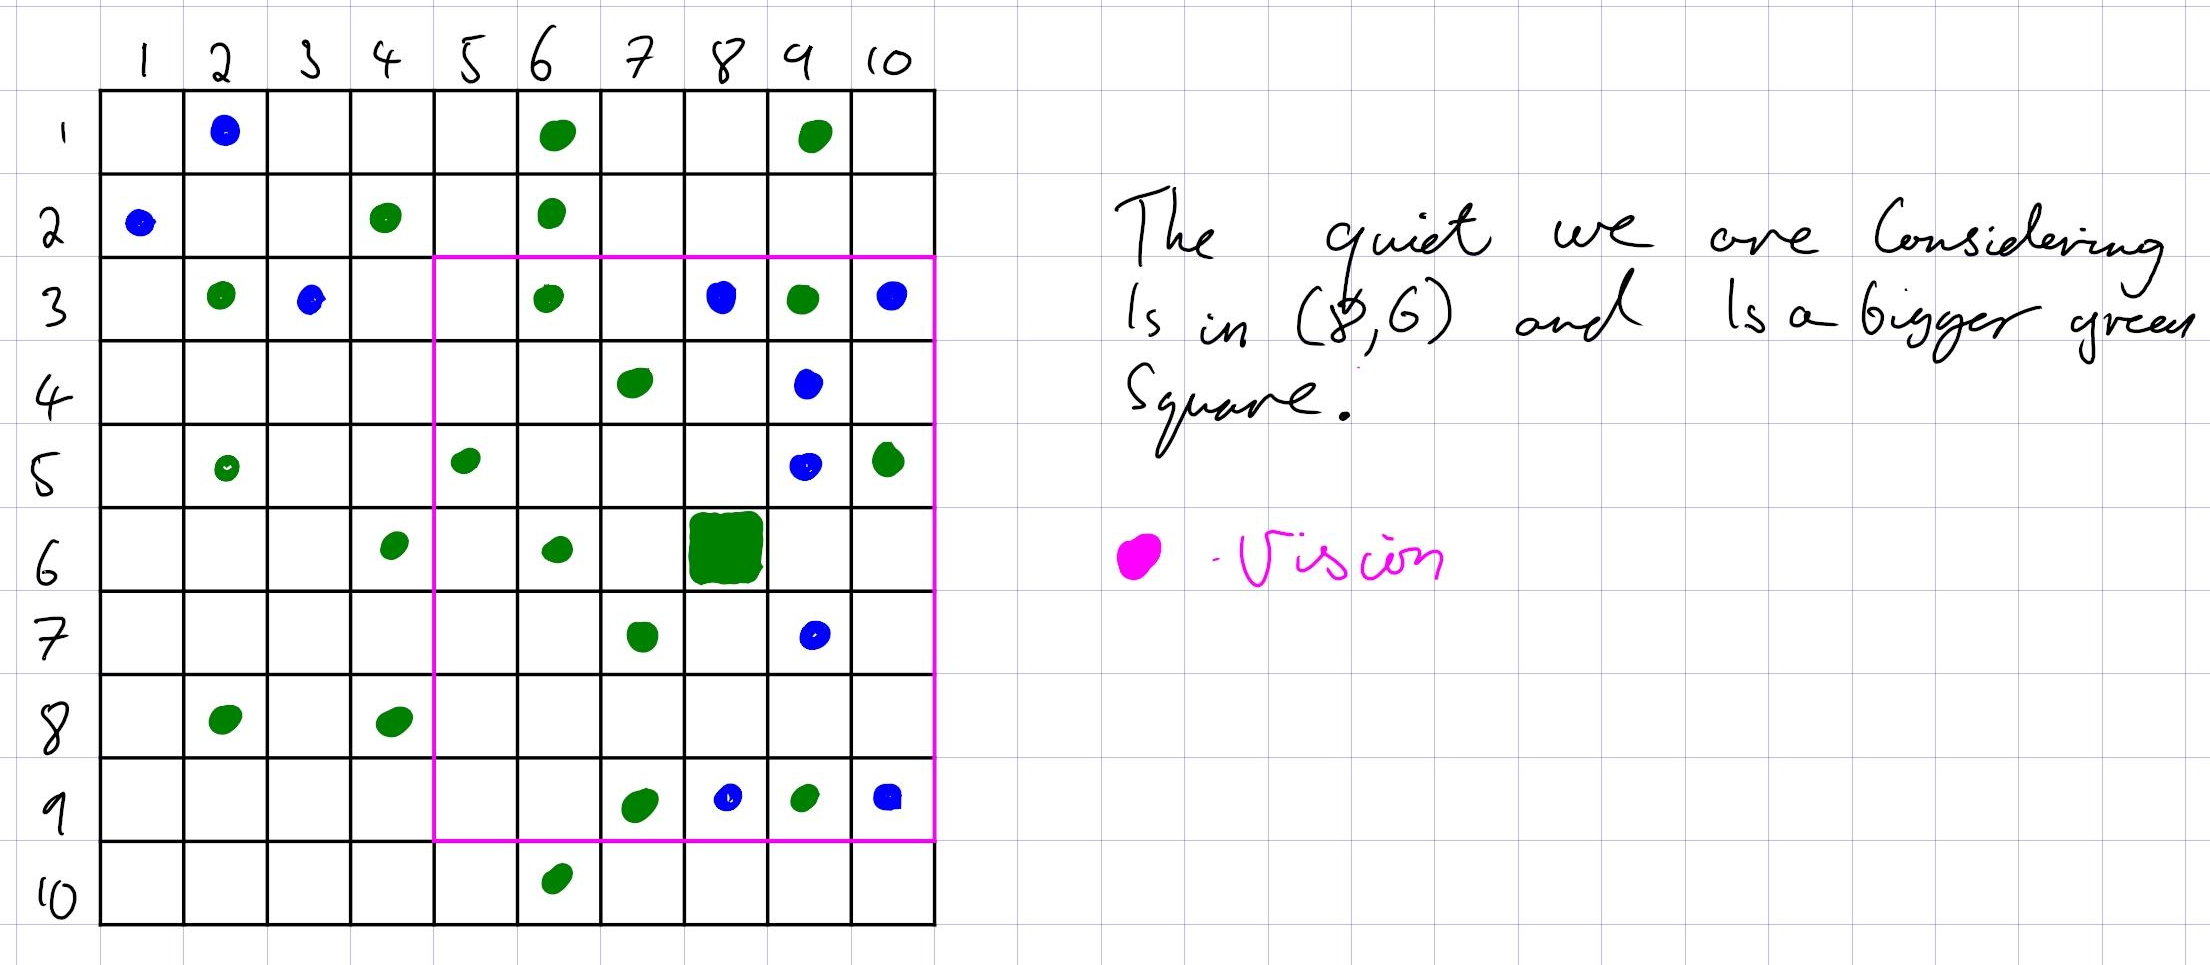 1 2 3 4 5 6 7 8 9 10
1
2
3
4
5
6
7
8
9
10
The quiet we are Considering
Is in (8,6) and Is a bigger green
Square.
- Vision